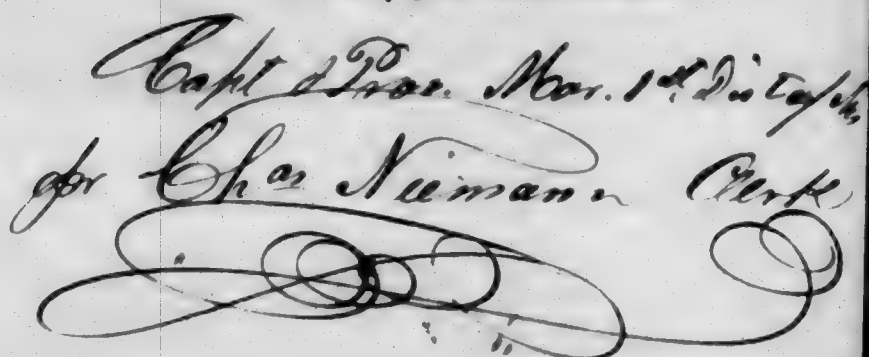 Capt & Prov. Mar. 1st Dist of Mo,
for Chas Niemann Clerk